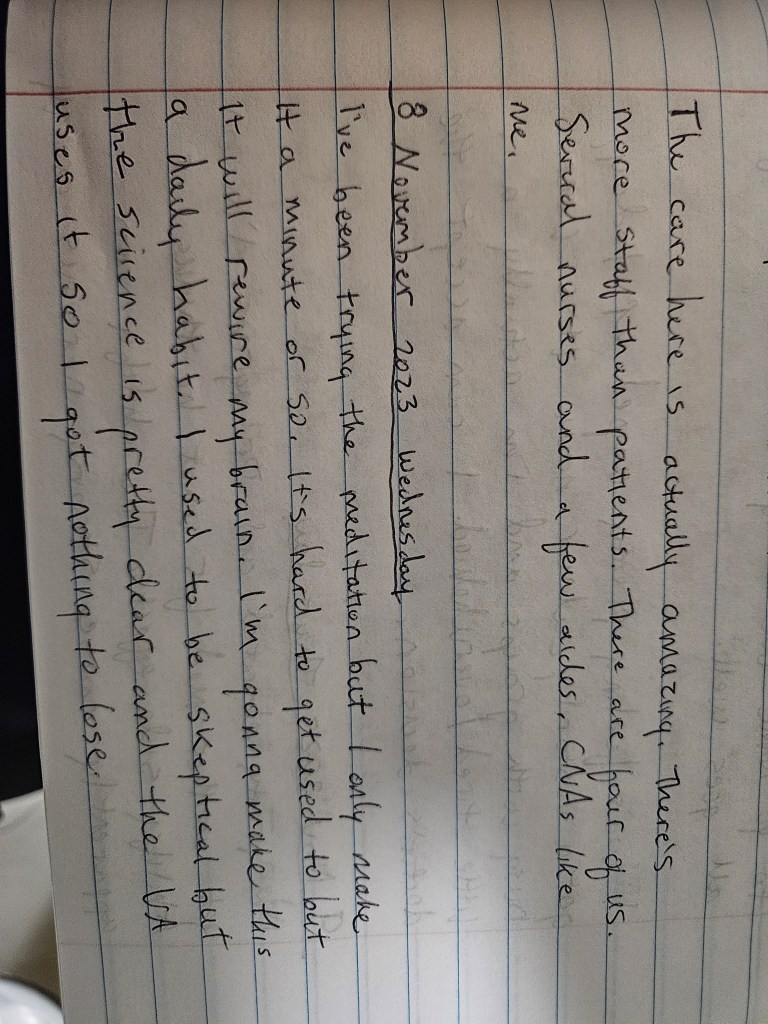 The care here is actually amazing. There's
more staff than patients. There are four of us.
Several nurses and a few aides, CNAs like
me.
8 November 2023 Wednesday
I've been trying the meditation but I only make
it a minute or so. It's hard to get used to but
it will rewire my brain. I'm gonna make this
a daily habit. I used to be skeptical but
the science is pretty clear and the VA
uses it so I got nothing to lose.